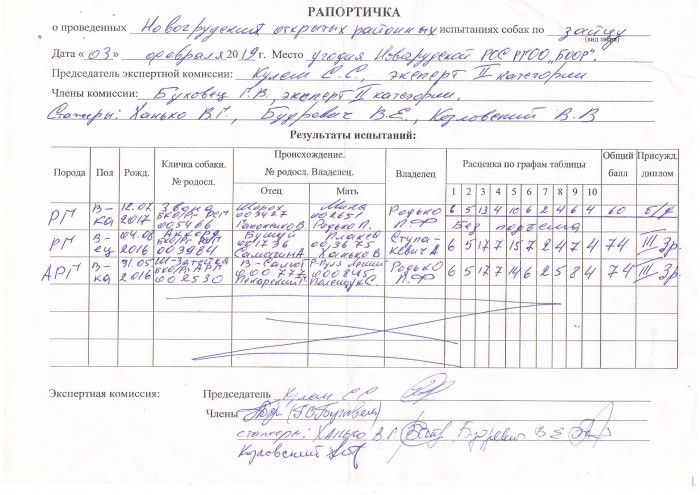 РАПОРТИЧКА
о проведенных Новогрудских открытых районных испытаниях собак по зайцу
(вид зверя)
Дата «03» февраля 2019 г. Место угодия Новогрудской РОС РГОО „БООР".
Председатель экспертной комиссии: Кулеш С.С., эксперт II категории
Члены комиссии: Буховец Г.В., эксперт II категории,
Стажеры: Ханько В.Г., Будревич В.Е., Козловский В.В
Результаты испытаний:
Порода Пол Рожд. Кличка собаки. № родосл. Происхождение. № родосл. Владелец. Отец Мать Владелец Расценка по графам таблицы 1 2 3 4 5 6 7 8 9 10 Общий балл Присужд. диплом
РГ В-ка 12.07 2017 005466 Шорох 003427 002651 Родько П. Родько 6 5 13 4 10 6 2 4 6 4 60 б/д
Без подъема
РГ В-ец 04.06 2016 Аккорд 003984 001736 003675 Ханько В Ступакевич А 6 5 17 7 15 7 2 4 7 4 74 III Зр.
АРГ В-ка 31.05 2016 002530 В-Салют 000777 000845 Полещук С. Родько 6 5 17 7 14 6 2 5 8 4 74 III Зр.
Экспертная комиссия: Председатель Кулеш С С
Члены
стажеры: Ханько В.Г Будревич В Е
Козловский